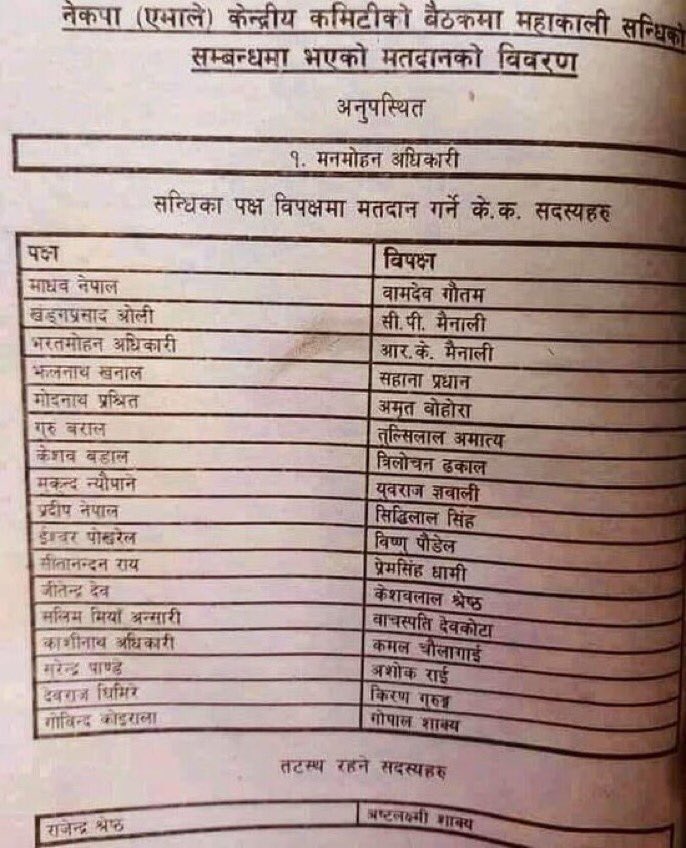 नेकपा (एमाले) केन्द्रीय कमिटीको बैठकमा महाकाली सन्धिको
सम्बन्धमा भएको मतदानको विवरण
अनुपस्थित
१. मनमोहन अधिकारी
सन्धिका पक्ष विपक्षमा मतदान गर्ने के.क. सदस्यहरु
पक्ष विपक्ष
माधव नेपाल वामदेव गौतम
खड्गप्रसाद ओली सी.पी. मैनाली
भरतमोहन अधिकारी आर.के. मैनाली
झलनाथ खनाल सहाना प्रधान
मोदनाथ प्रश्रित अमृत बोहोरा
गुरु बराल तुल्सिलाल अमात्य
केशव बडाल त्रिलोचन ढकाल
मुकुन्द न्यौपाने युवराज ज्ञवाली
प्रदीप नेपाल सिद्धिलाल सिंह
ईश्वर पोखरेल विष्णु पौडेल
सीतानन्दन राय प्रेमसिंह धामी
जीतेन्द्र देव केशवलाल श्रेष्ठ
सलिम मियाँ अन्सारी वाचस्पति देवकोटा
काशीनाथ अधिकारी कमल चौलागाई
सुरेन्द्र पाण्डे अशोक राई
देवराज घिमिरे किरण गुरुङ
गोविन्द कोइराला गोपाल शाक्य
तटस्थ रहने सदस्यहरु
राजेन्द्र श्रेष्ठ अष्टलक्ष्मी शाक्य